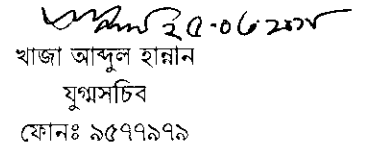 ২৫.০৬.২০১৮
খাজা আব্দুল হান্নান
যুগ্মসচিব
ফোনঃ ৯৫৭৭৯৭৯